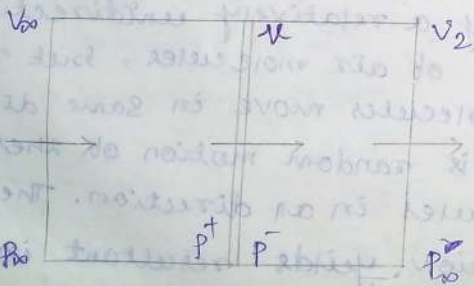 V∞ u V2
P∞ p+ p- p∞